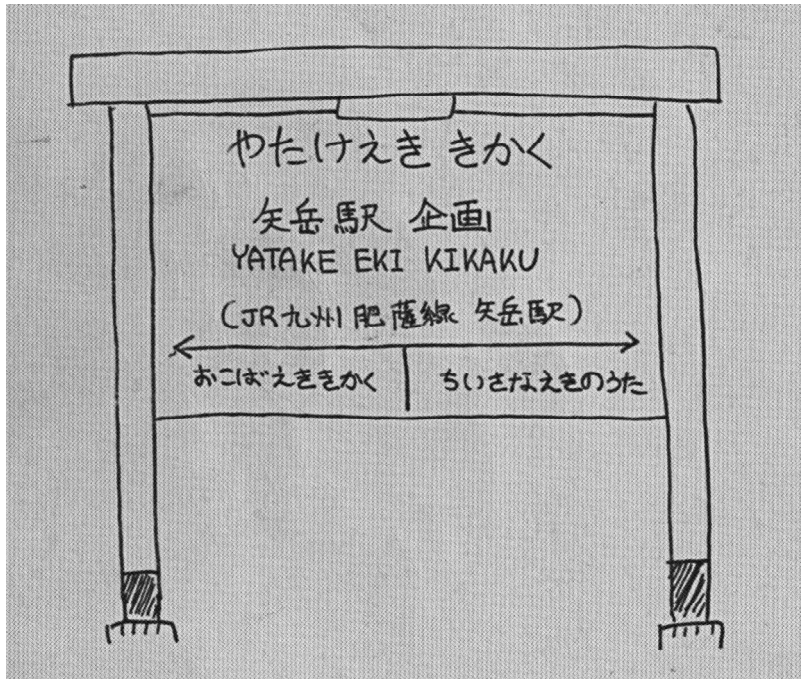 やたけえき きかく
矢岳駅 企画
YATAKE EKI KIKAKU
(JR九州 肥薩線 矢岳駅)
おこばえききかく
ちいさなえきのうた